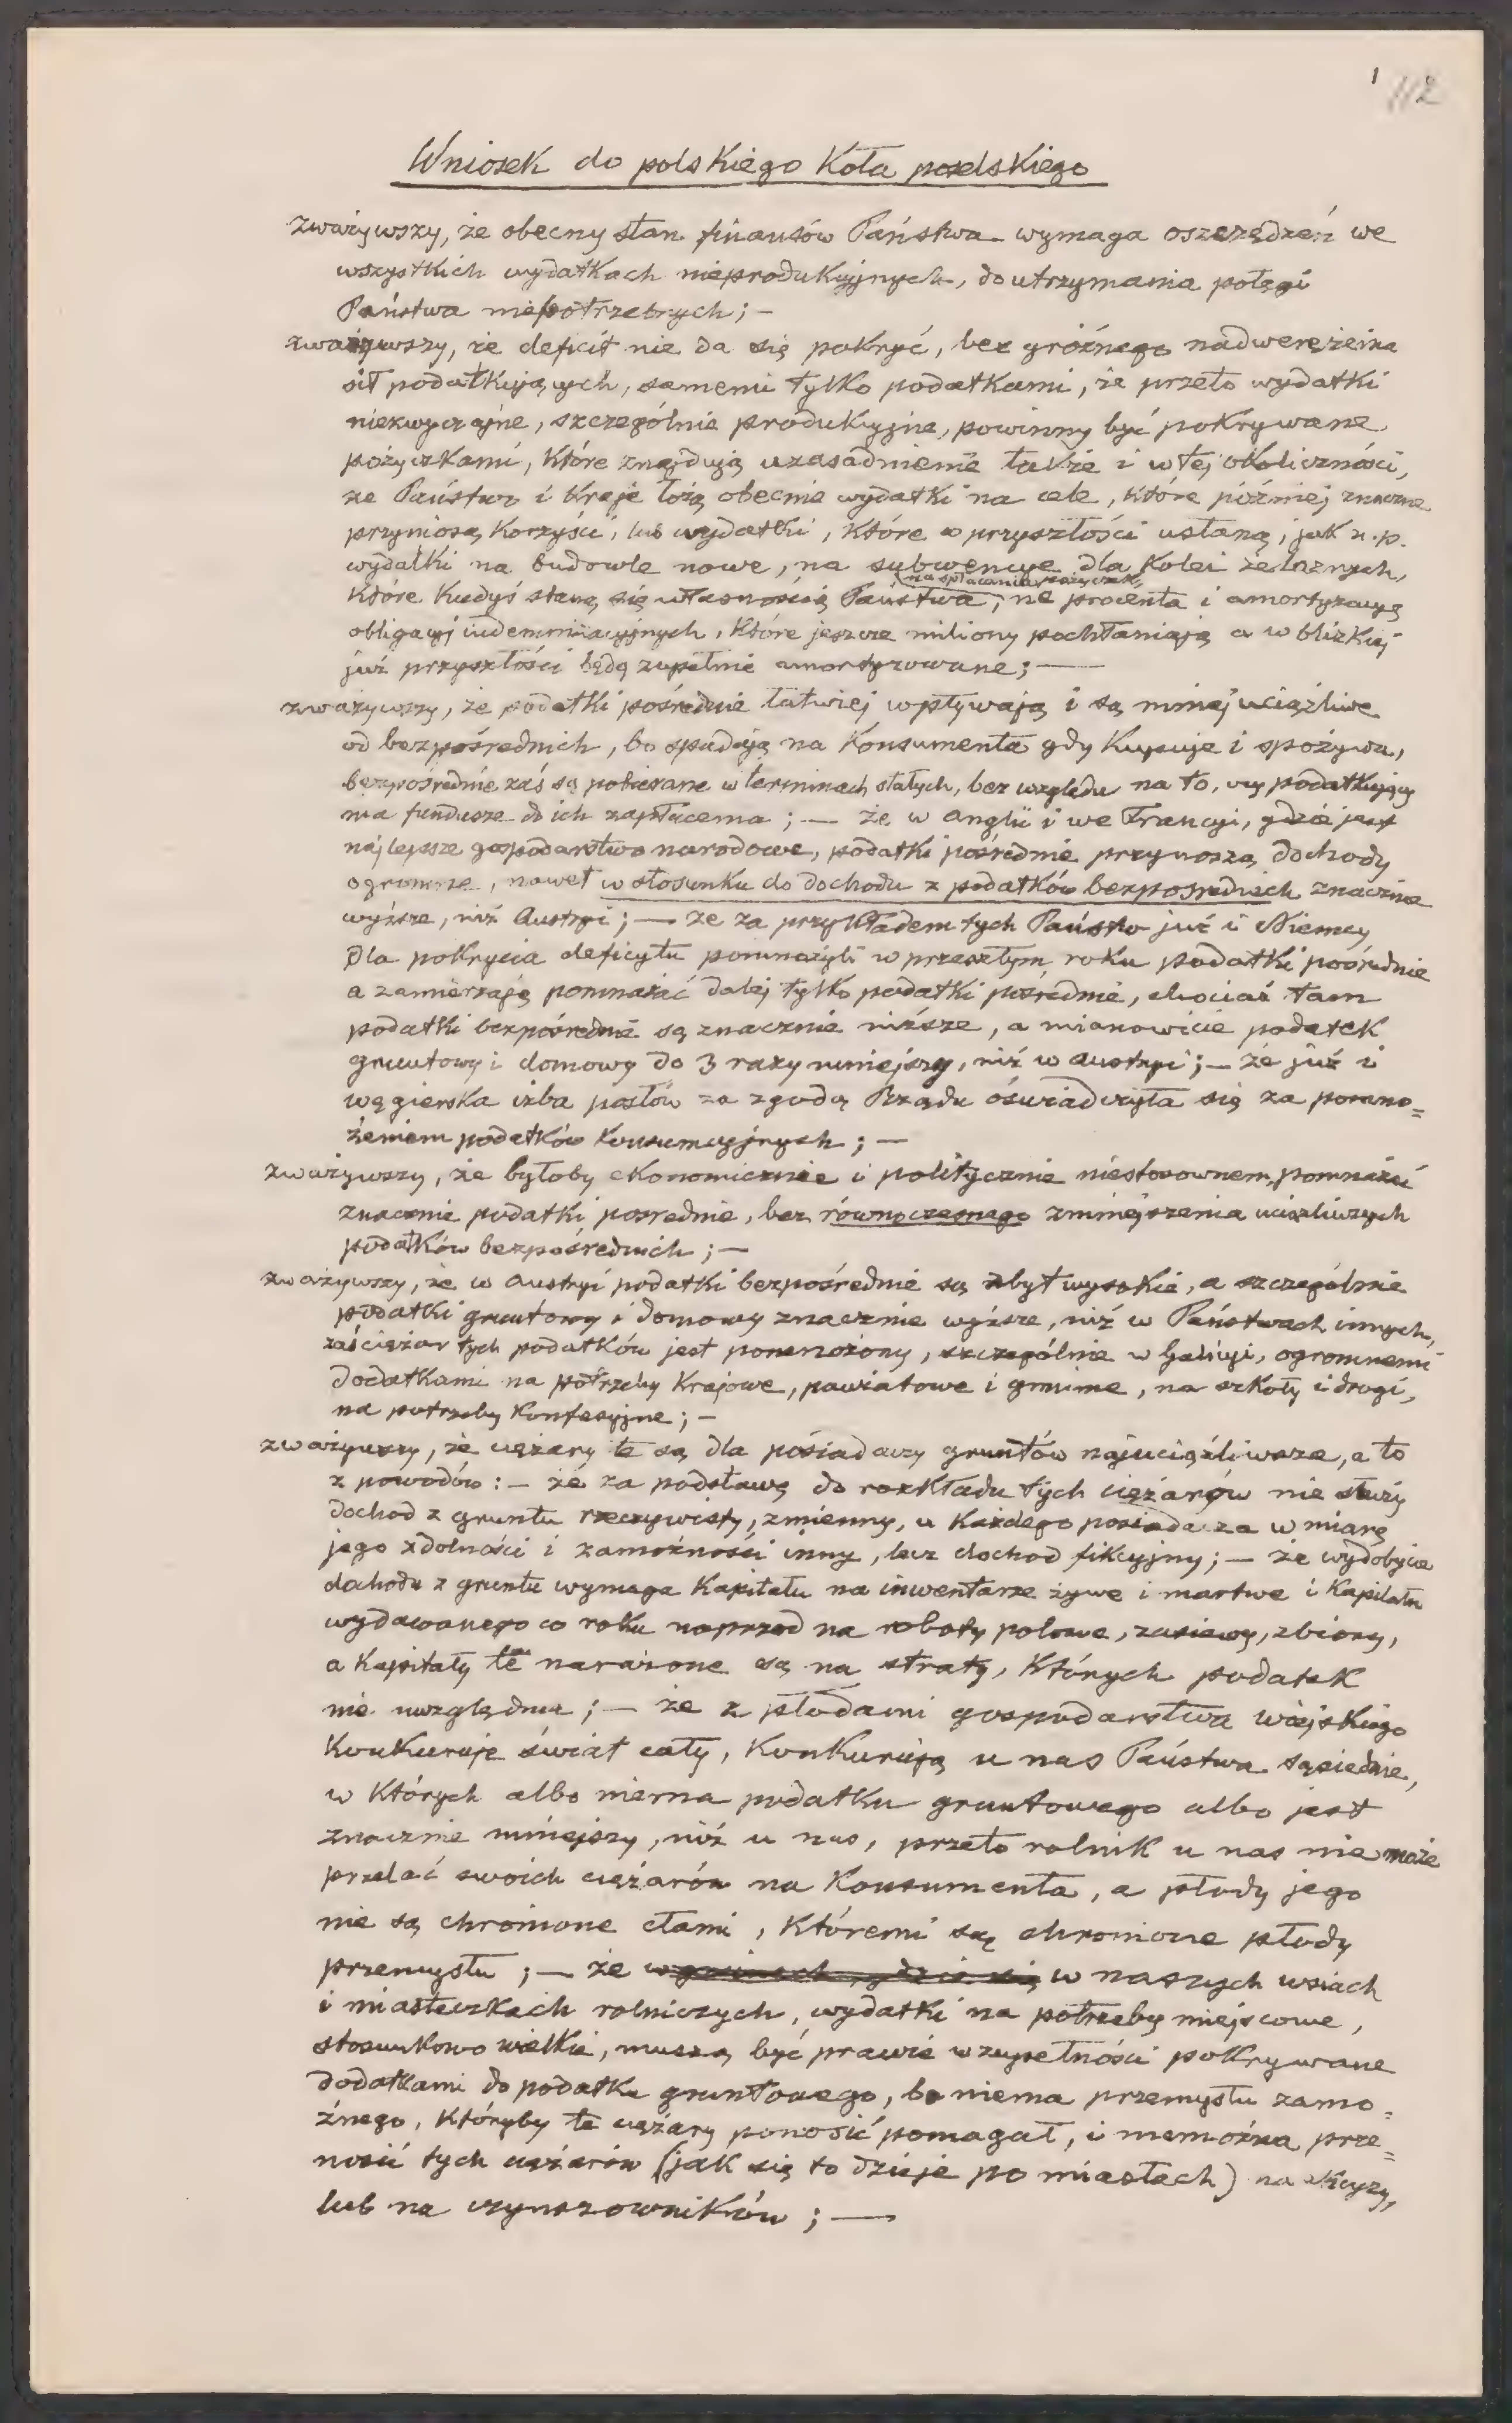 1 112
Wniosek do polskiego Koła poselskiego
zważywszy, że obecny stan finansów Państwa wymaga oszczędzeń we
wszystkich wydatkach nieprodukcyjnych, do utrzymania potęgi
Państwa niepotrzebnych; –
zważywszy, że deficit nie da się pokryć, bez groźnego nadwerężenia
sił podatkujących, samemi tylko podatkami, że przeto wydatki
niezwyczajne, szczególnie produkcyjne, powinny być pokrywane
pożyczkami, które znajdują uzasadnienie także i w tej okoliczności,
że Państwo i Kraje łożą obecnie wydatki na cele, które później znaczne
przyniosą korzyści, lub wydatki, które w przyszłości ustaną, jak n.p.
wydatki na budowle nowe, na subwencye dla Kolei żelaznych,
na spłacanie pożyczek,
które kiedyś staną się własnością Państwa, na procenta i amortyzacyą
obligacyj indemnizacyjnych, które jeszcze miliony pochłaniają a w blizkiej
już przyszłości będą zupełnie amortyzowane; —
zważywszy, że podatki pośrednie łatwiej wpływają i są mniej uciążliwe
od bezpośrednich, bo spadają na Konsumenta gdy kupuje i spożywa,
bezpośrednie zaś są pobierane w terminach stałych, bez względu na to, czy podatkujący
ma fundusze do ich zapłacenia; — że w Anglii i we Francyi, gdzie jest
najlepsze gospodarstwo narodowe, podatki pośrednie przynoszą dochody
ogromne, nawet w stosunku do dochodu z podatków bezpośrednich znacznie
wyższe, niż Austryi; — że za przykładem tych Państw już i Niemcy
dla pokrycia deficytu pomnożyli w przeszłym roku podatki pośrednie
a zamierzają pomnażać dalej tylko podatki pośrednie, chociaż tam
podatki bezpośrednie są znacznie niższe, a mianowicie podatek
gruntowy i domowy do 3 razy mniejszy, niż w Austryi; — że już i
węgierska izba posłów za zgodą Rządu oświadczyła się za pomno=
żeniem podatków konsumcyjnych; —
zważywszy, że byłoby ekonomicznie i politycznie niestosownem, pomnażać
znacznie podatki pośrednie, bez równoczesnego zmniejszenia uciążliwszych
podatków bezpośrednich; —
zważywszy, że w Austryi podatki bezpośrednie są zbyt wysokie, a szczególnie
podatki gruntowy i domowy znacznie wyższe, niż w Państwach innych,
zaś ciężar tych podatków jest pomnożony, szczególnie w Galicyi, ogromnemi
dodatkami na potrzeby Krajowe, powiatowe i gminne, na szkoły i drogi,
na potrzeby Konfesyjne; –
zważywszy, że ciężary te są dla posiadaczy gruntów najuciążliwsze, a to
z powodów: – że za podstawę do rozkładu tych ciężarów nie służy
dochod z gruntu rzeczywisty, zmienny, u każdego posiadacza w miarę
jego zdolności i zamożności inny, lecz dochod fikcyjny; — że wydobycie
dochodu z gruntu wymaga Kapitału na inwentarze żywe i martwe i Kapitału
wydawanego co roku naprzod na roboty polowe, zasiewy, zbiory,
a Kapitały te narażone są na straty, których podatek
nie uwzględnia; — że z płodami gospodarstwa wiejskiego
Konkuruje świat cały, Konkurują u nas Państwa sąsiednie,
w których albo niema podatku gruntowego albo jest
znacznie mniejszy, niż u nas, przeto rolnik u nas nie może
przelać swoich ciężarów na Konsumenta, a płody jego
nie są chronione cłami, któremi są chronione płody
przemysłu; — że w naszych wsiach
i miasteczkach rolniczych, wydatki na potrzeby miejscowe,
stosunkowo wielkie, muszą być prawie w zupełności pokrywane
dodatkami do podatku gruntowego, bo niema przemysłu zamo=
żnego, któryby te ciężary ponosić pomagał, i niemożna prze=
nosić tych ciężarów (jak się to dzieje po miastach) na akcyzy,
lub na czynszowników; —